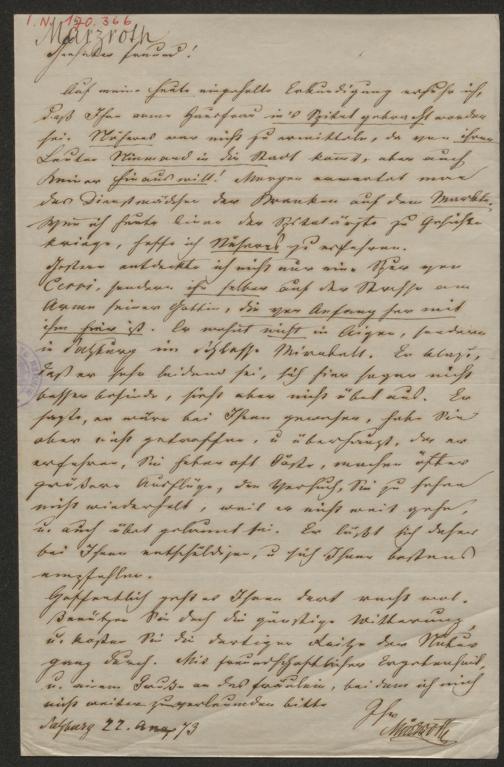 I. N. 120.366
Märzroth
Geehrter Freund!
Auf meine heute eingeholte Erkundigung erfuhr ich,
daß Ihre arme Hausfrau in's Spital gebracht worden
sei. Näheres war nicht zu ermitteln, da von ihren
Leuten Niemand in die Stadt kommt, aber auch
keiner hinaus will! Morgen erwartet man
das Dienstmädchen der Kranken auf dem Markte.
Wenn ich heute einen der Spitalärzte zu Gesichte
kriege, hoffe ich Näheres zu erfahren.
Gestern entdeckte ich nicht nur eine Spur von
Cerri, sondern ihn selber auf der Strasse am
Arme seiner Gattin, die von Anfang her mit
ihm hier ist. Er wohnt nicht in Aigen, sondern
in Salzburg im Schlosse Mirabell. Er klagt,
daß er sehr leidend sei, sich hier sogar nicht
besser befinde, sieht aber nicht übel aus. Er
sagte, er wäre bei Ihnen gewesen, habe Sie
aber nicht getroffen, u überhaupt, da er
erfahren, Sie haben oft Gäste, machen öfter
größere Ausflüge, den Versuch, Sie zu sehen
nicht wiederholt, weil er nicht weit gehe,
u. auch übel gelaunt sei. Er läßt sich daher
bei Ihnen entschuldigen, u sich Ihnen bestens
empfehlen.
Hoffentlich geht es Ihnen dort recht wol.
Benützen Sie doch die günstige Witterung,
u. kosten Sie die dortigen Reize der Natur
ganz durch. Mit freundschaftlicher Ergebenheit,
u. einem Gruße an das Fräulein, bei dem ich mich
nicht weiter zu verleumden bitte
Ihr
Salzburg 22. Aug 73 Märzroth